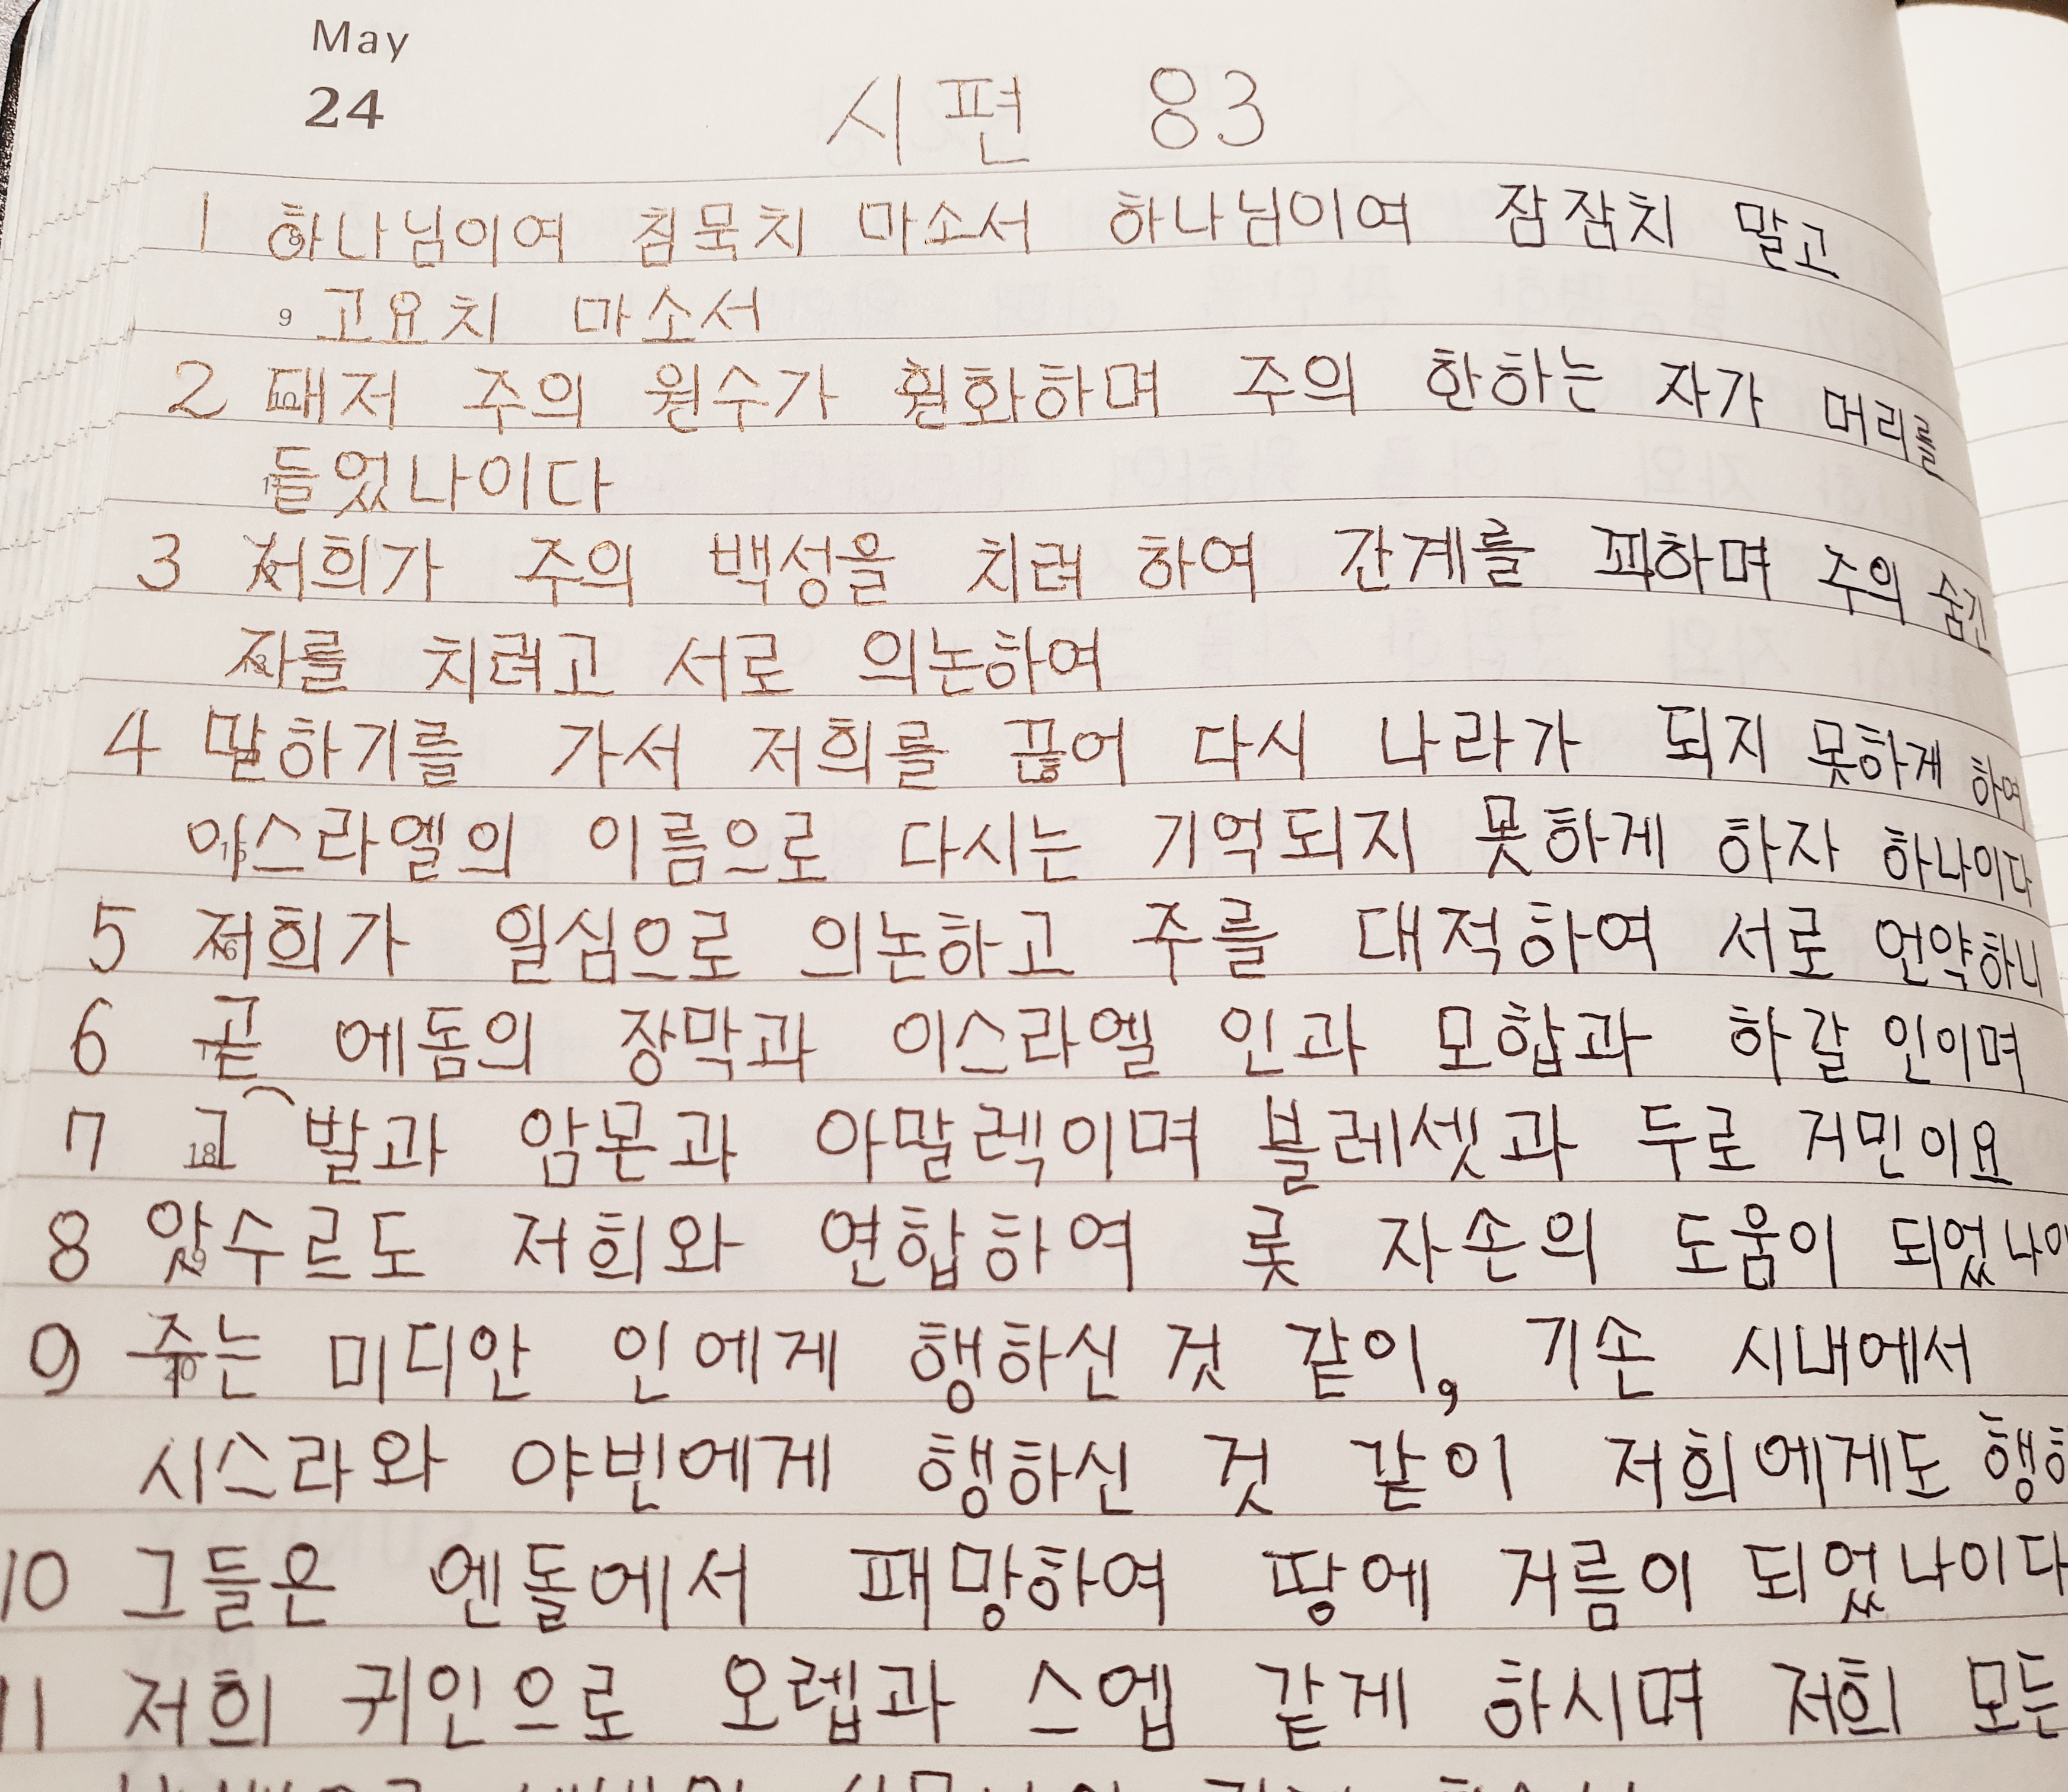 May
24
시편 83
1 하나님이여 침묵치 마소서 하나님이여 잠잠치 말고
9 고요치 마소서
2 때저 주의 원수가 훤화하며 주의 한하는 자가 머리를
들었나이다
3 저희가 주의 백성을 치려 하여 간계를 꾀하며 주의 숨긴
자를 치려고 서로 의논하여
4 말하기를 가서 저희를 끊어 다시 나라가 되지 못하게 하여
이스라엘의 이름으로 다시는 기억되지 못하게 하자 하나이다
5 저희가 일심으로 의논하고 주를 대적하여 서로 언약하니
6 곧 에돔의 장막과 이스라엘 인과 모합과 하갈 인이며
7 그발과 암몬과 아말렉이며 블레셋과 두로 거민이요
8 앗수르도 저희와 연합하여 롯 자손의 도움이 되었나이
9 주는 미디안 인에게 행하신 것 같이, 기손 시내에서
시스라와 야빈에게 행하신 것 같이 저희에게도 행하
10 그들은 엔돌에서 패망하여 땅에 거름이 되었나이다
11 저희 귀인으로 오렙과 스엡 같게 하시며 저희 모든